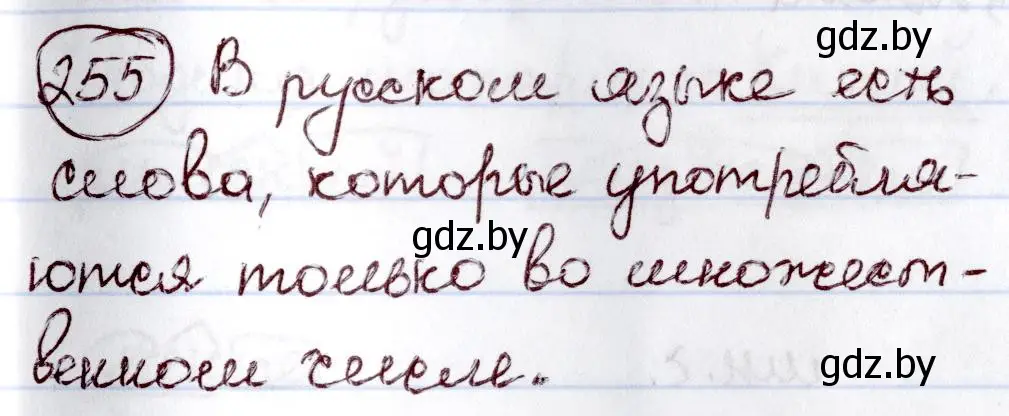 255 В русском языке есть
слова, которые употребля-
ются только во множест-
венном числе.
gdz.by
gdz.by
gdz.by